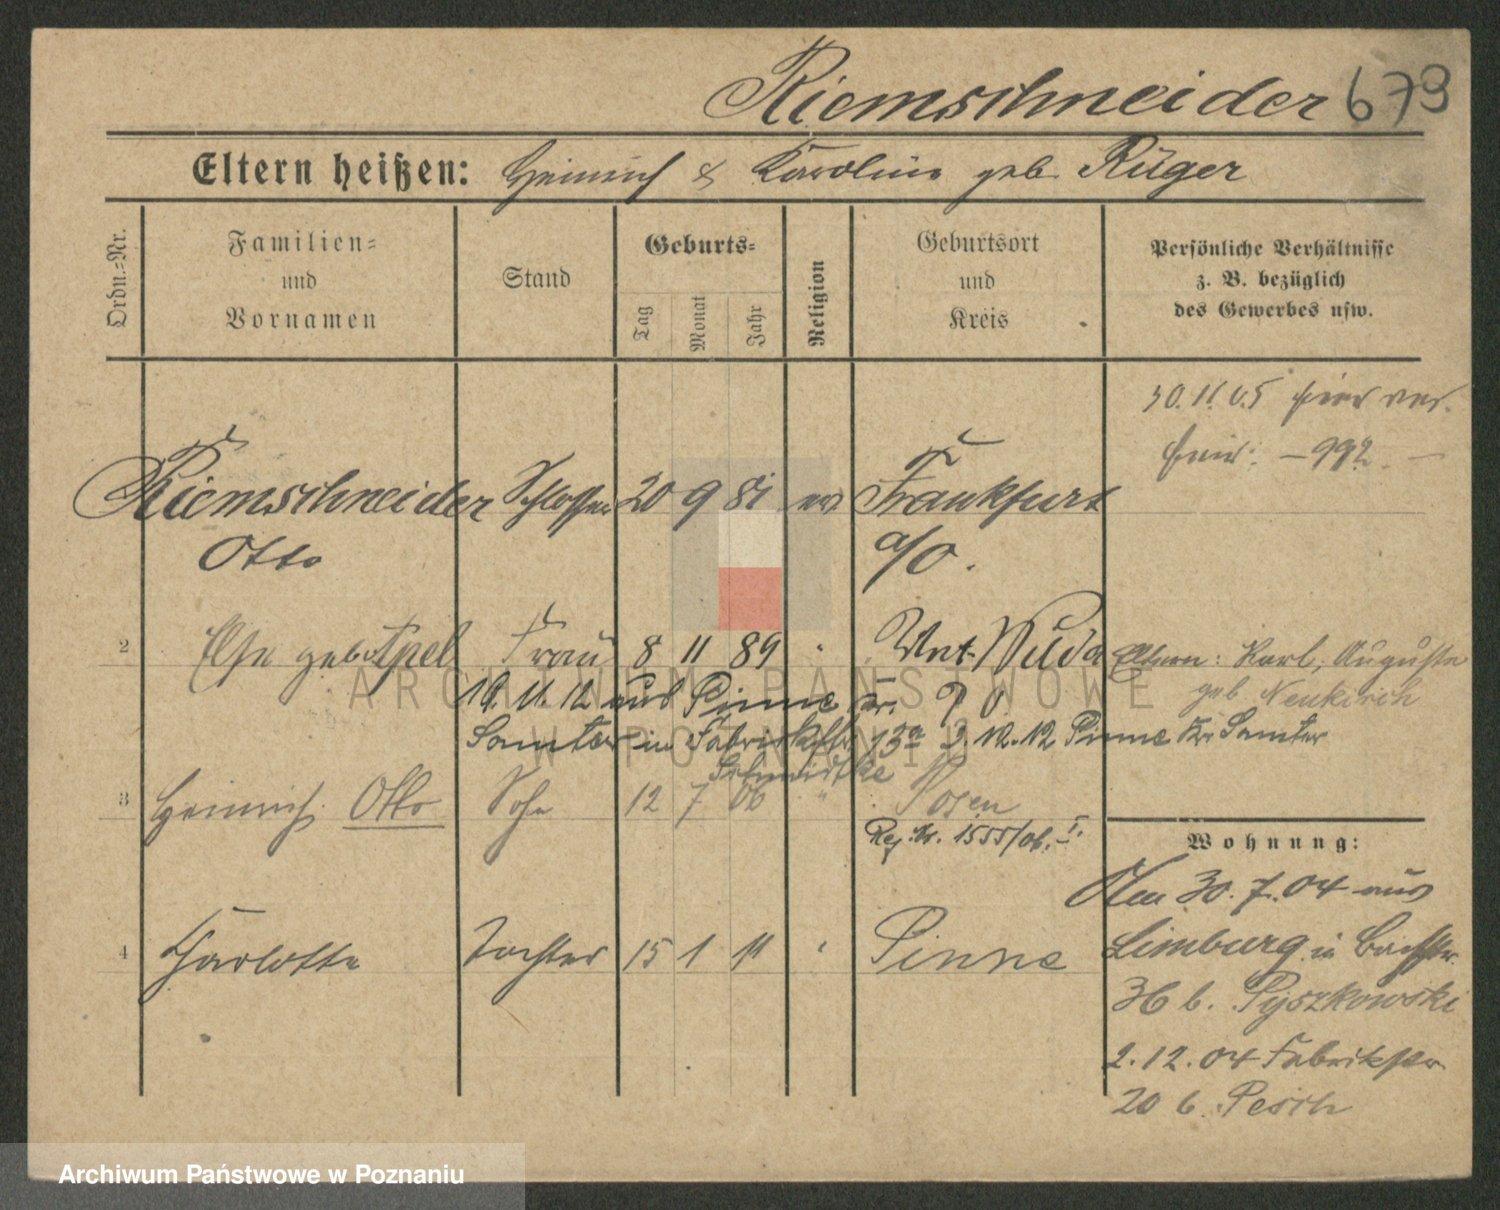 Riemschneider 673
Eltern heißen: Heinrich & Karoline geb. Rüger
Ordn.=Nr.
Familien=
und
Vornamen
Stand
Geburts=
Tag
Monat
Jahr
Religion
Geburtsort
und
Kreis
Persönliche Verhältnisse
z. B. bezüglich
des Gewerbes usw.
30. 11. 05 hier ver.
heir: - 992. -
Riemschneider Schlosser 20 9 81 ev Frankfurt
Otto a/O.
2 Else geb. Apel Frau 8 11 89 " Unt. Wilda
Eltern: Karl, Auguste
geb. Neukirch
19. 11. 12 aus Pinne Kr.
Samter in Fabrikstr. 13a 3.12.12 Pinne Kr Samter
Schmidtke
3 Heinrich Otto Sohn 12 7 06 " Posen
Reg. Nr. 1555/06. I.
4 Charlotte Tochter 15 1 11 " Pinne
Wohnung:
Am 30. 7. 04 aus
Limburg in Bachstr.
36 b. Pyszkowski
2. 12. 04 Fabrikstr
20 b. Pesch
ARCHIWUM PAŃSTWOWE
W POZNANIU
Archiwum Państwowe w Poznaniu